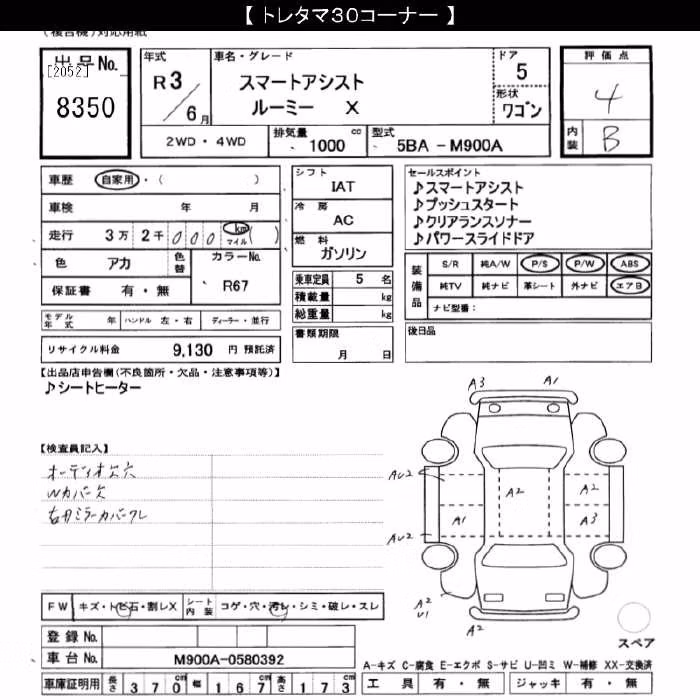 【トレタマ30コーナー】
(複合機)対応用紙
出品No.
[2052]
8350
年式
R3/6月
車名・グレード
スマートアシスト
ルーミー X
ドア
5
形状
ワゴン
評価点
4
内装
B
2WD・4WD
排気量
1000 cc
型式
5BA-M900A
車歴 自家用・( )
車検 年 月
走行 3万 2千 000 km マイル ( )
色 アカ 色替 カラーNo. R67
保証書 有・無
モデル年式 年 ハンドル 左・右 ディーラー・並行
リサイクル料金 9,130 円 預託済
シフト
IAT
冷房
AC
燃料
ガソリン
乗車定員 5 名
積載量 kg
総重量 kg
書類期限
月 日
セールスポイント
♪スマートアシスト
♪プッシュスタート
♪クリアランスソナー
♪パワースライドドア
装備品
S/R 純A/W P/S P/W ABS
純TV 純ナビ 革シート 外ナビ エアB
ナビ型番:
後日品
【出品店申告欄(不良箇所・欠品・注意事項等)】
♪シートヒーター
【検査員記入】
オーディオ欠穴
Wカバー欠
右ドミラーカバークレ
A3 A1
AU2 A2 A2
A1 A3
AU2
A2
U1
A2
スペア
FW キズ・トビ石・割レX シート内装 コゲ・穴・汚レ・シミ・破レ・スレ
登録No.
車台No. M900A-0580392
車庫証明用 長さ 370cm 幅 167cm 高さ 173cm
A-キズ C-腐食 E-エクボ S-サビ U-凹ミ W-補修 XX-交換済
工具 有・無 ジャッキ 有・無